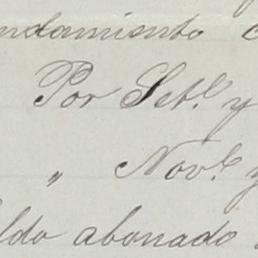 ndamiento
Por Setbe. y
" Novbe. y
ldo abonado